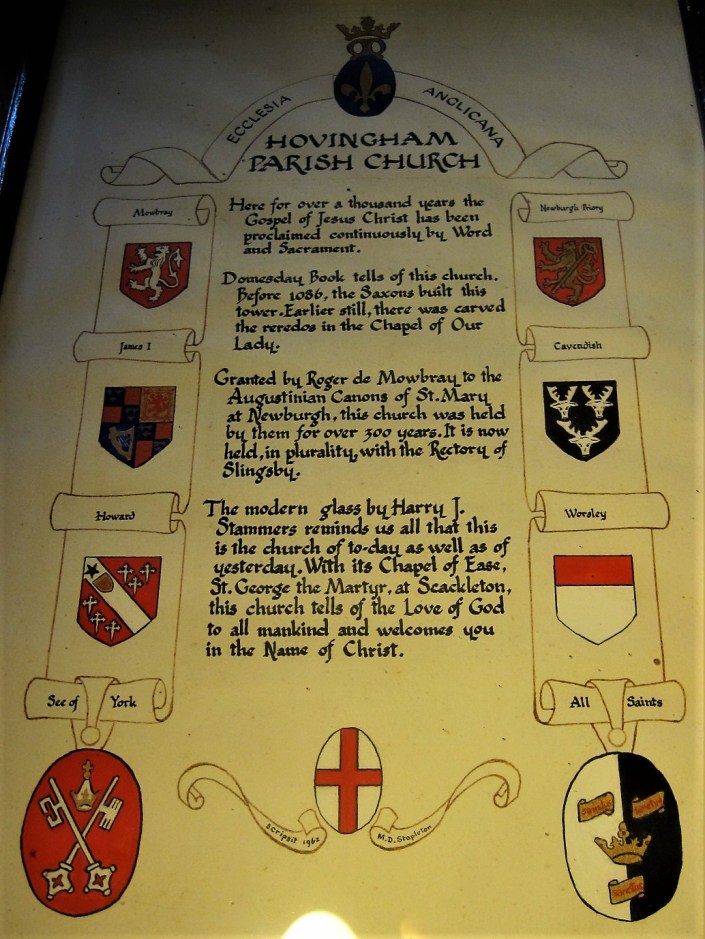 ECCLESIA ANGLICANA
HOVINGHAM
PARISH CHURCH
Here for over a thousand years the
Gospel of Jesus Christ has been
proclaimed continuously by Word
and Sacrament.
Domesday Book tells of this church.
Before 1086, the Saxons built this
tower. Earlier still, there was carved
the reredos in the Chapel of Our
Lady.
Granted by Roger de Mowbray to the
Augustinian Canons of St. Mary
at Newburgh, this church was held
by them for over 300 years. It is now
held, in plurality, with the Rectory of
Slingsby.
The modern glass by Harry J.
Stammers reminds us all that this
is the church of to-day as well as of
yesterday. With its Chapel of Ease,
St. George the Martyr, at Scackleton,
this church tells of the Love of God
to all mankind and welcomes you
in the Name of Christ.
Mowbray
James I
Howard
See of York
Newburgh Priory
Cavendish
Worsley
All Saints
Scripsit 1962 M.D. Stapleton
Sanctus
Sanctus
Sanctus